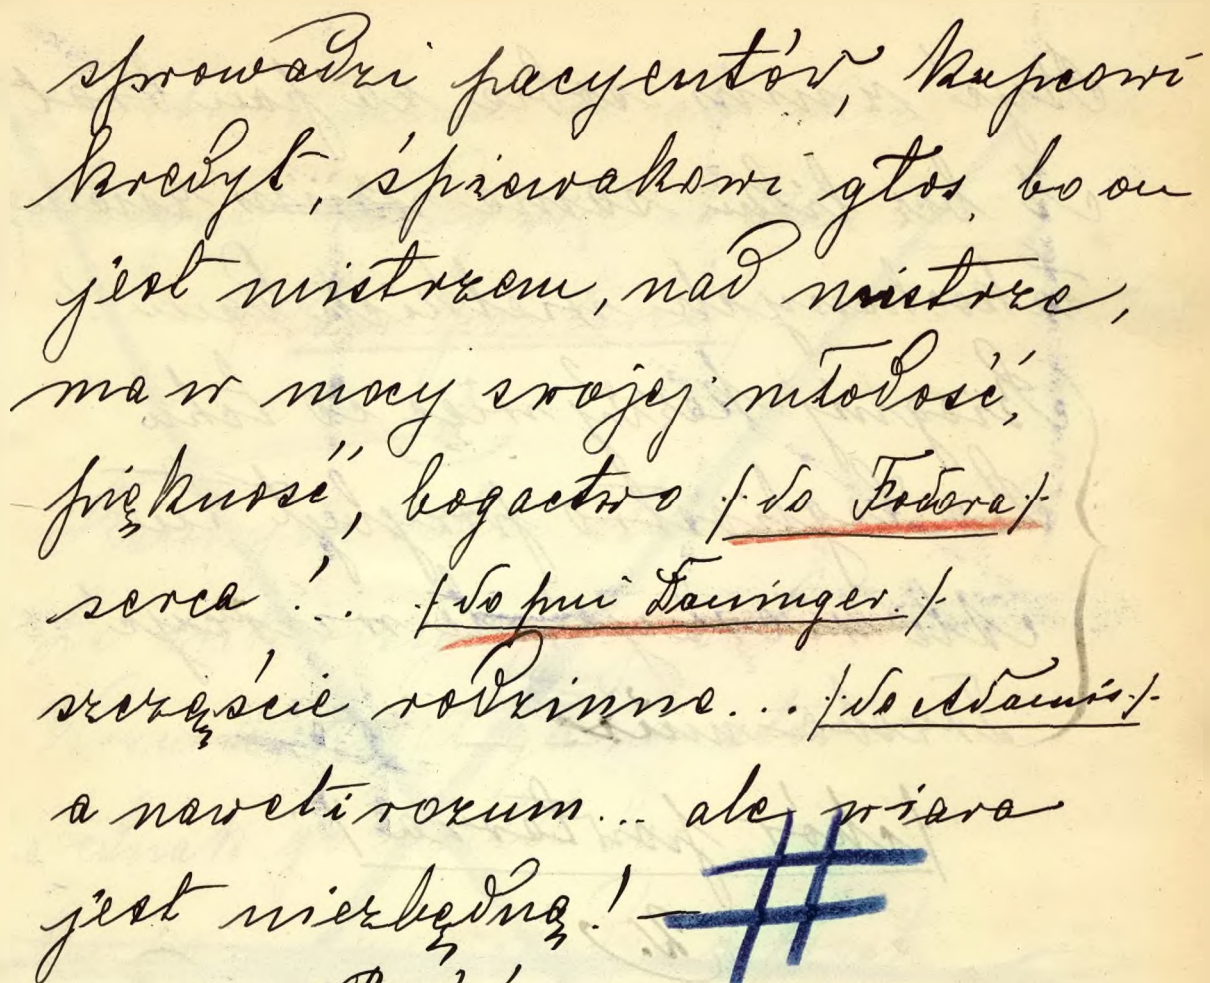 sprowadzi pacyentów, kupcowi
kredyt, śpiewakowi głos, bo on
jest mistrzem, nad mistrze,
ma w mocy swojej młodość,
piękność, bogactwo /: do Fodora :/
serca !.. /: do pni Daninger. :/
szczęście rodzinne... /: do Adamis :/
a nawet i rozum... ale wiara
jest niezbędną! — #